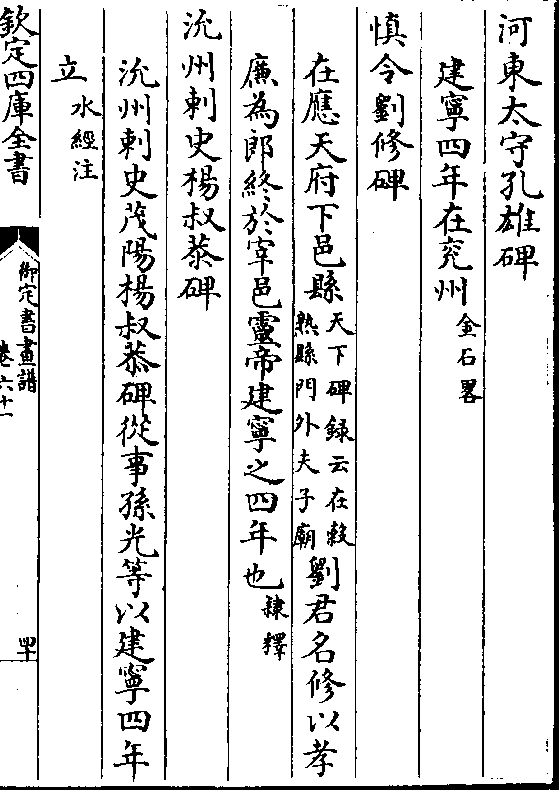 河東太守孔雄碑
建寧四年在兖州金石畧
慎令劉修碑
在應天府下邑縣天下碑録云在穀熟縣門外夫子廟劉君名修以孝
廉為郎終於宰邑靈帝建寧之四年也隷釋
沇州刺史楊叔恭碑
沇州刺史茂陽楊叔恭碑從事孫光等以建寧四年
立水經注
欽定四庫全書
御定書畫譜
卷六十一
四十